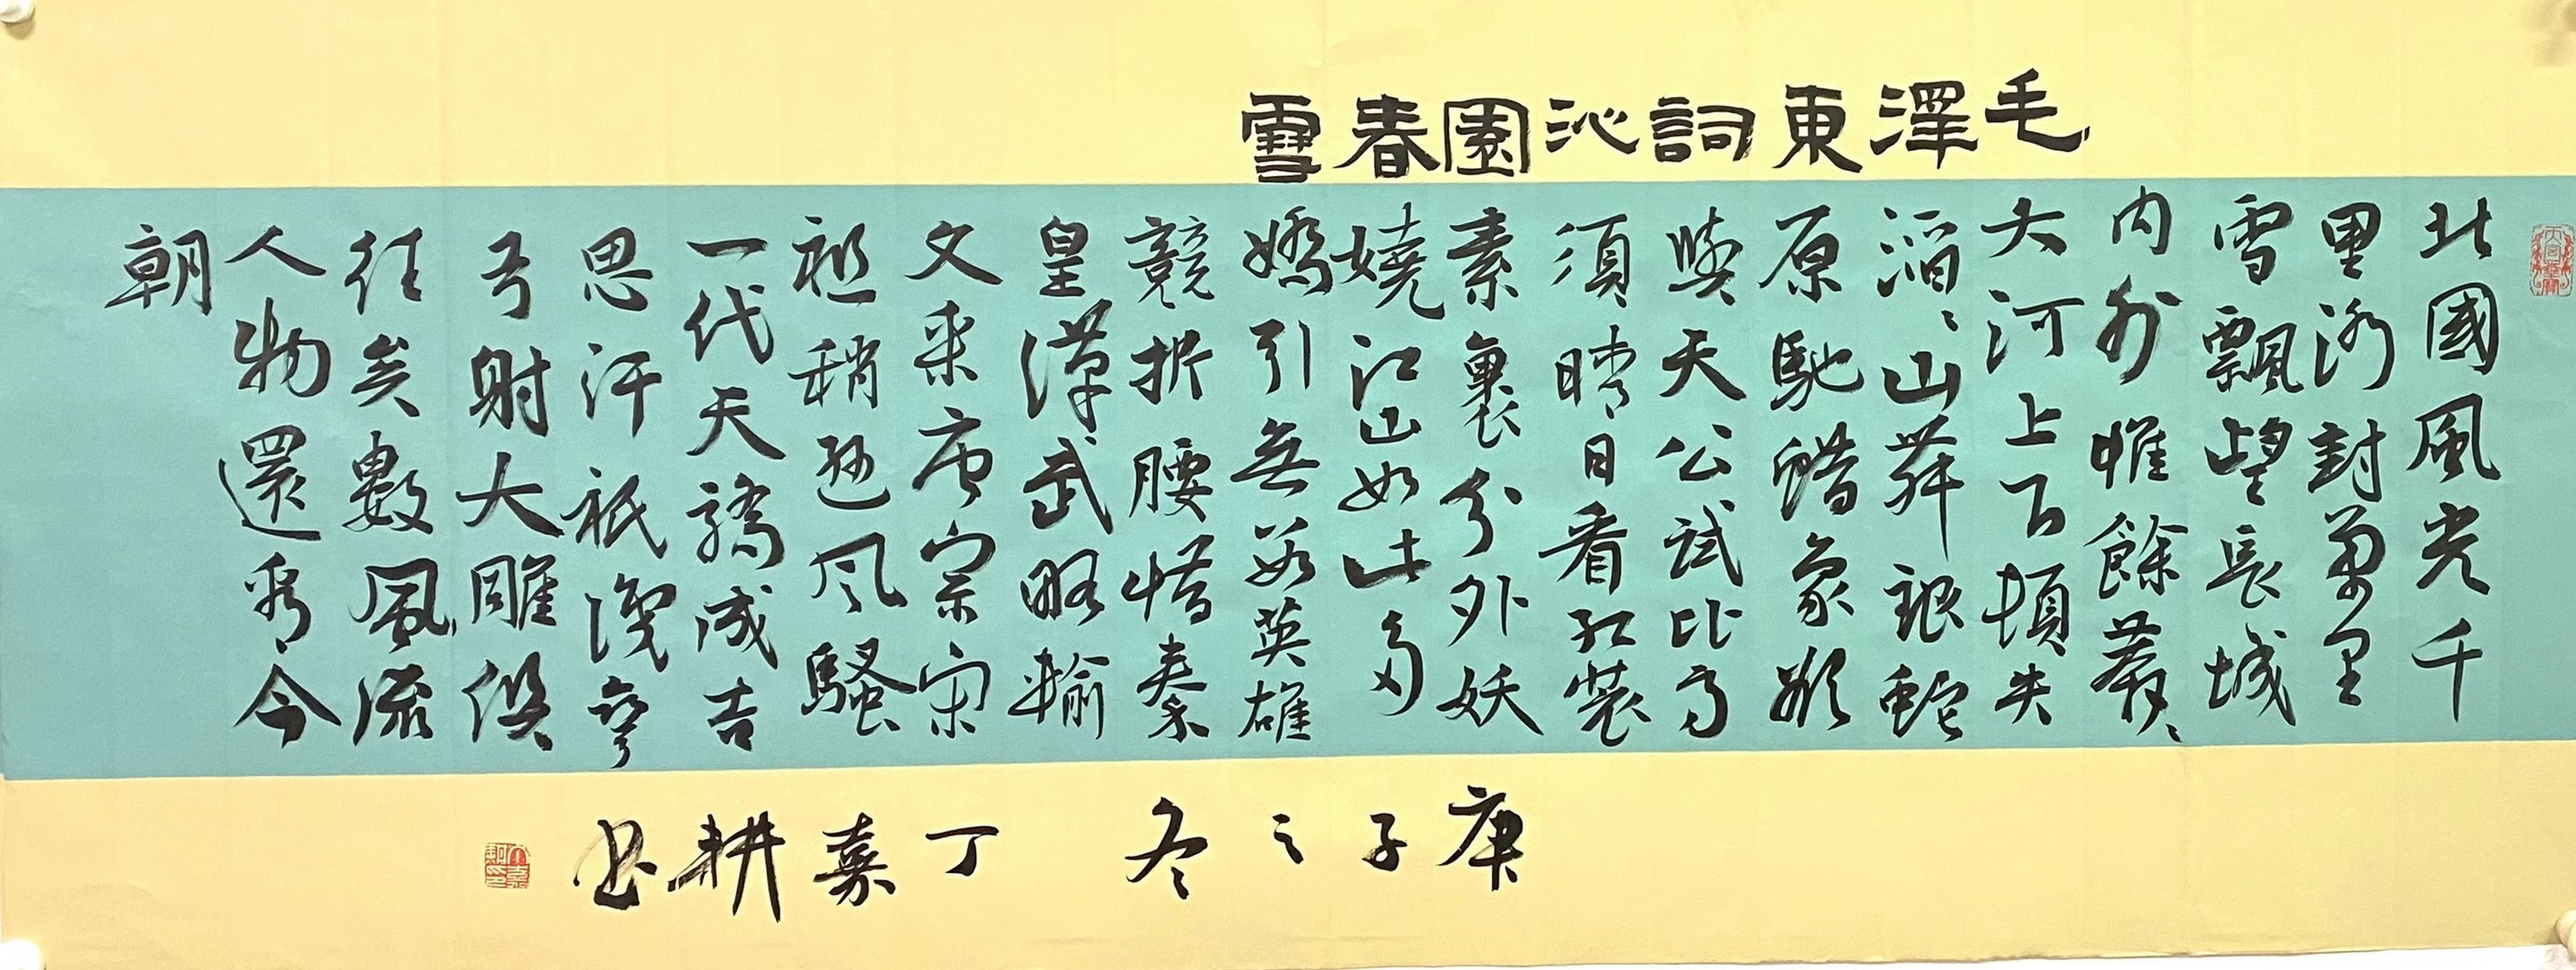 毛澤東詞沁園春雪
北國風光千
里冰封萬里
雪飄望長城
内外惟餘莽〻
大河上下頓失
滔〻山舞銀蛇
原馳蜡象欲
與天公試比高
須晴日看紅裝
素裹分外妖
嬈江山如此多
嬌引無數英雄
競折腰惜秦
皇漢武略輸
文采唐宗宋
祖稍遜風騷
一代天驕成吉
思汗祇識彎
弓射大雕俱
往矣數風流
人物還看今
朝
庚子之冬 丁嘉耕書